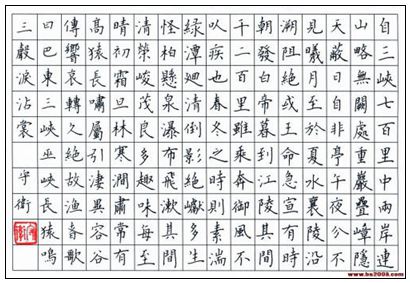 自三峽七百里中兩岸連
山略無闕處重巖疊嶂隱
天蔽日自非亭午夜分不
見曦月至於夏水襄陵沿
溯阻絕或王命急宣有時
朝發白帝暮到江陵其間
千二百里雖乘奔御風不
以疾也春冬之時則素湍
綠潭迴清倒影絕巘多生
怪柏懸泉瀑布飛漱其間
清榮峻茂良多趣味每至
晴初霜旦林寒澗肅常有
高猿長嘯屬引淒異容谷
傳響哀轉久絕故漁者歌
曰巴東三峽巫峽長猿鳴
三聲淚沾裳 守衛
www.bs2008.com